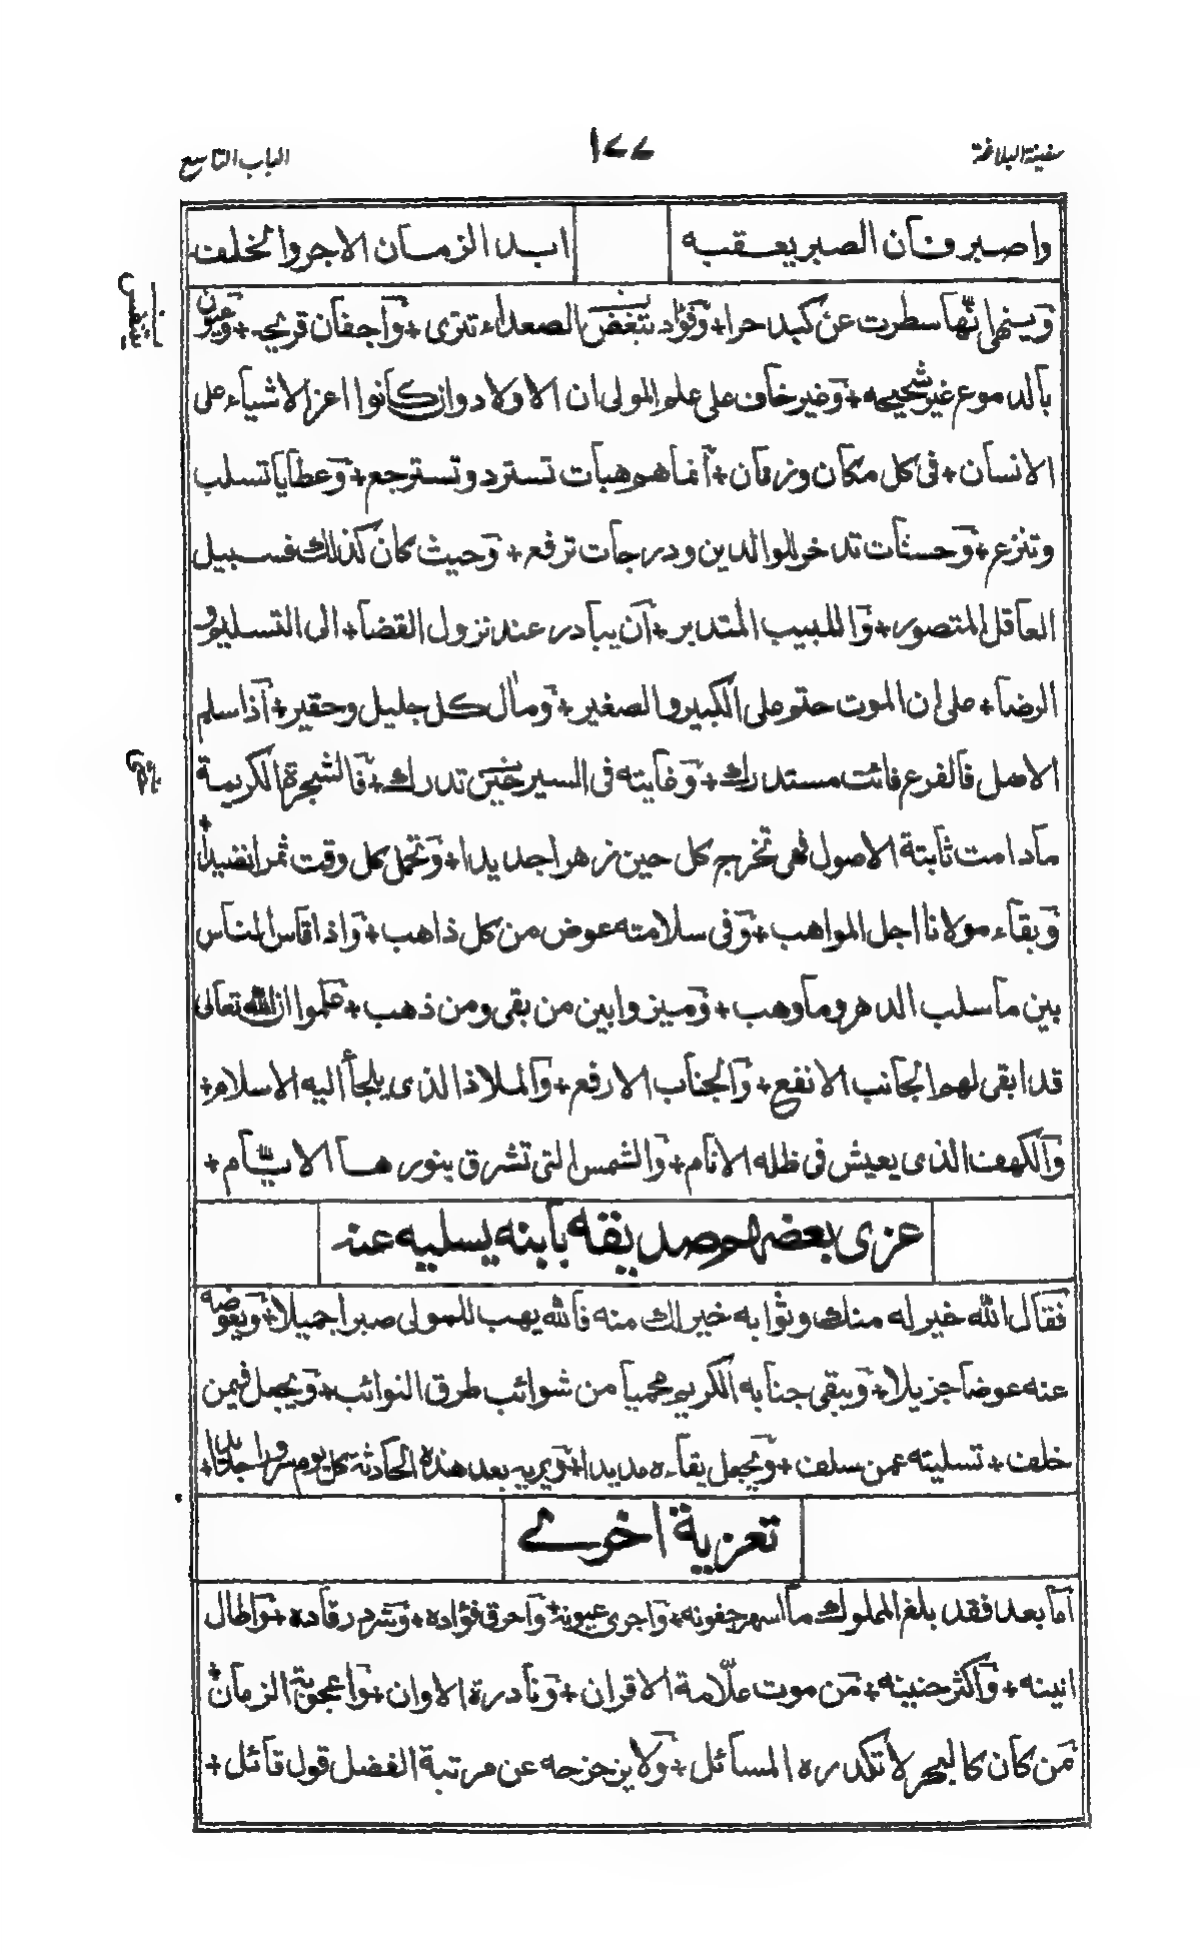 سفينة البلاغة ١٧٧ الباب التاسع
واصبر فان الصبر يعقبه ابد الزمان الاجر والخلف
وينهى انها سطرت عن كبد حرا + وفؤاد بتنغص الصعداء تترى + واجفان قريحه + وعيون
بالدموع غير شحيحه + وغير خاف على علم المولى ان الاولاد وان كانوا اعز الاشياء على
الانسان + فى كل مكان وزمان + انما هم هبات تسترد وتسترجع + وعطايا تسلب
وتنزع + وحسنات تدخر للوالدين ودرجات ترفع + وحيث كان كذلك فسبيل
العاقل المتصور + واللبيب المتدبر + ان يبادر عند نزول القضا + الى التسليم و
الرضا + على ان الموت حتم على الكبير والصغير + ومال كل جليل وحقير + اذا سلم
الاصل فالفرع فائت مستدرك + وغايته فى السير حين تدرك + فالشجرة الكريمة
مادامت ثابتة الاصول فهى تخرج كل حين زهرا جديدا + وتحمل كل وقت ثمرا نضيدا +
وبقاء مولانا اجل المواهب + وفى سلامته عوض من كل ذاهب + واذا قاس الناس
بين ما سلب الدهر وما وهب + وميزوا بين من بقى ومن ذهب + علموا ان الله تعالى
قد ابقى لهم الجانب الانفع + والجناب الارفع + والملاذ الذى يلجأ اليه الاسلام +
والكهف الذى يعيش فى ظله الانام + والشمس التى تشرق بنورها الايام +
عزى بعضهم صديقه بابنه يسليه عنه
فقال الله خير له منك وثوابه خير لك منه فالله يهب للمولى صبرا جميلا + ويعوضه
عنه عوضا جزيلا + ويبقى جنابه الكريم محميا من شوائب طرق النوائب + ويجعل فيمن
خلف + تسليته عمن سلف + ويجعل بقاءه مديدا + ويريه بعد هذه الحادثة كل يوم سرورا جديدا +
تعزية اخرى
اما بعد فقد بلغ المملوك ما اسهر جفونه + واجرى عيونه + واحرق فؤاده + وشرم رقاده + واطال
انينه + واكثر حنينه + من موت علّامة الاقران + ونادرة الاوان + واعجوبة الزمان +
من كان كالبحر لا تكدره المسائل + ولا يزحزحه عن مرتبة الفضل قول قائل +